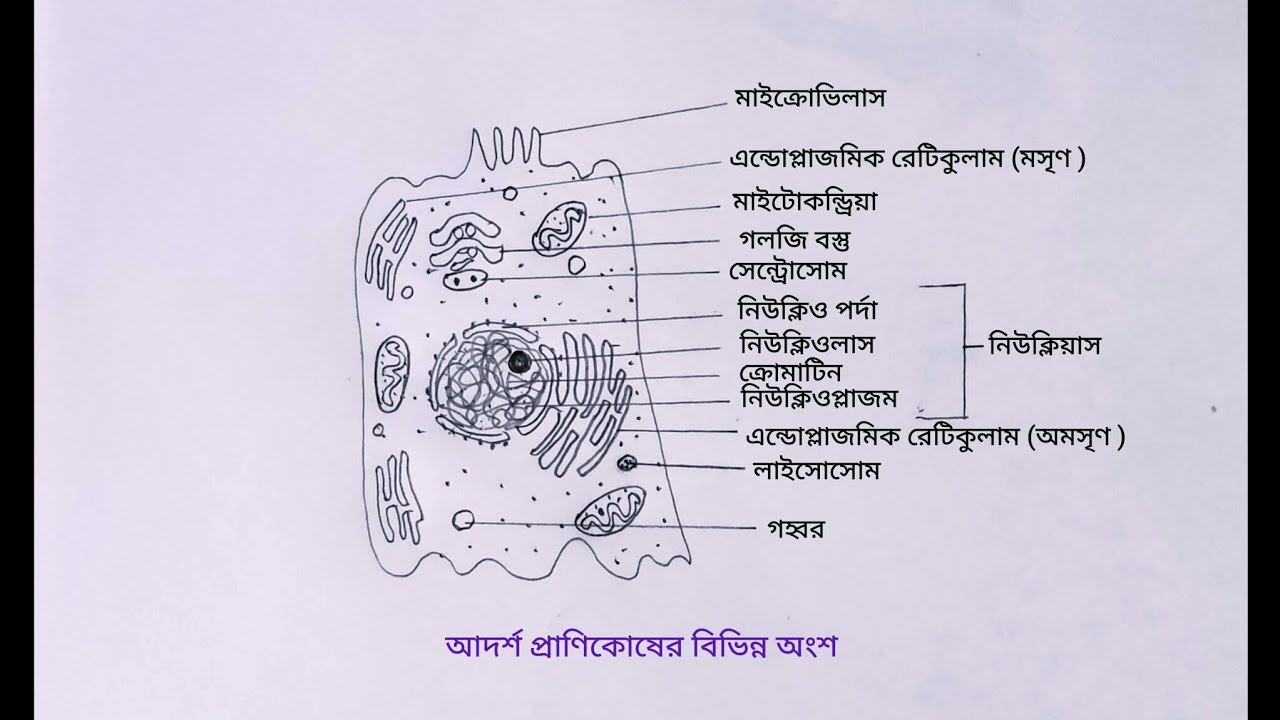 মাইক্রোভিলাস
এন্ডোপ্লাজমিক রেটিকুলাম (মসৃণ )
মাইটোকন্ড্রিয়া
গলজি বস্তু
সেন্ট্রোসোম
নিউক্লিও পর্দা
নিউক্লিওলাস
নিউক্লিয়াস
ক্রোমাটিন
নিউক্লিওপ্লাজম
এন্ডোপ্লাজমিক রেটিকুলাম (অমসৃণ )
লাইসোসোম
গহ্বর
আদর্শ প্রাণিকোষের বিভিন্ন অংশ